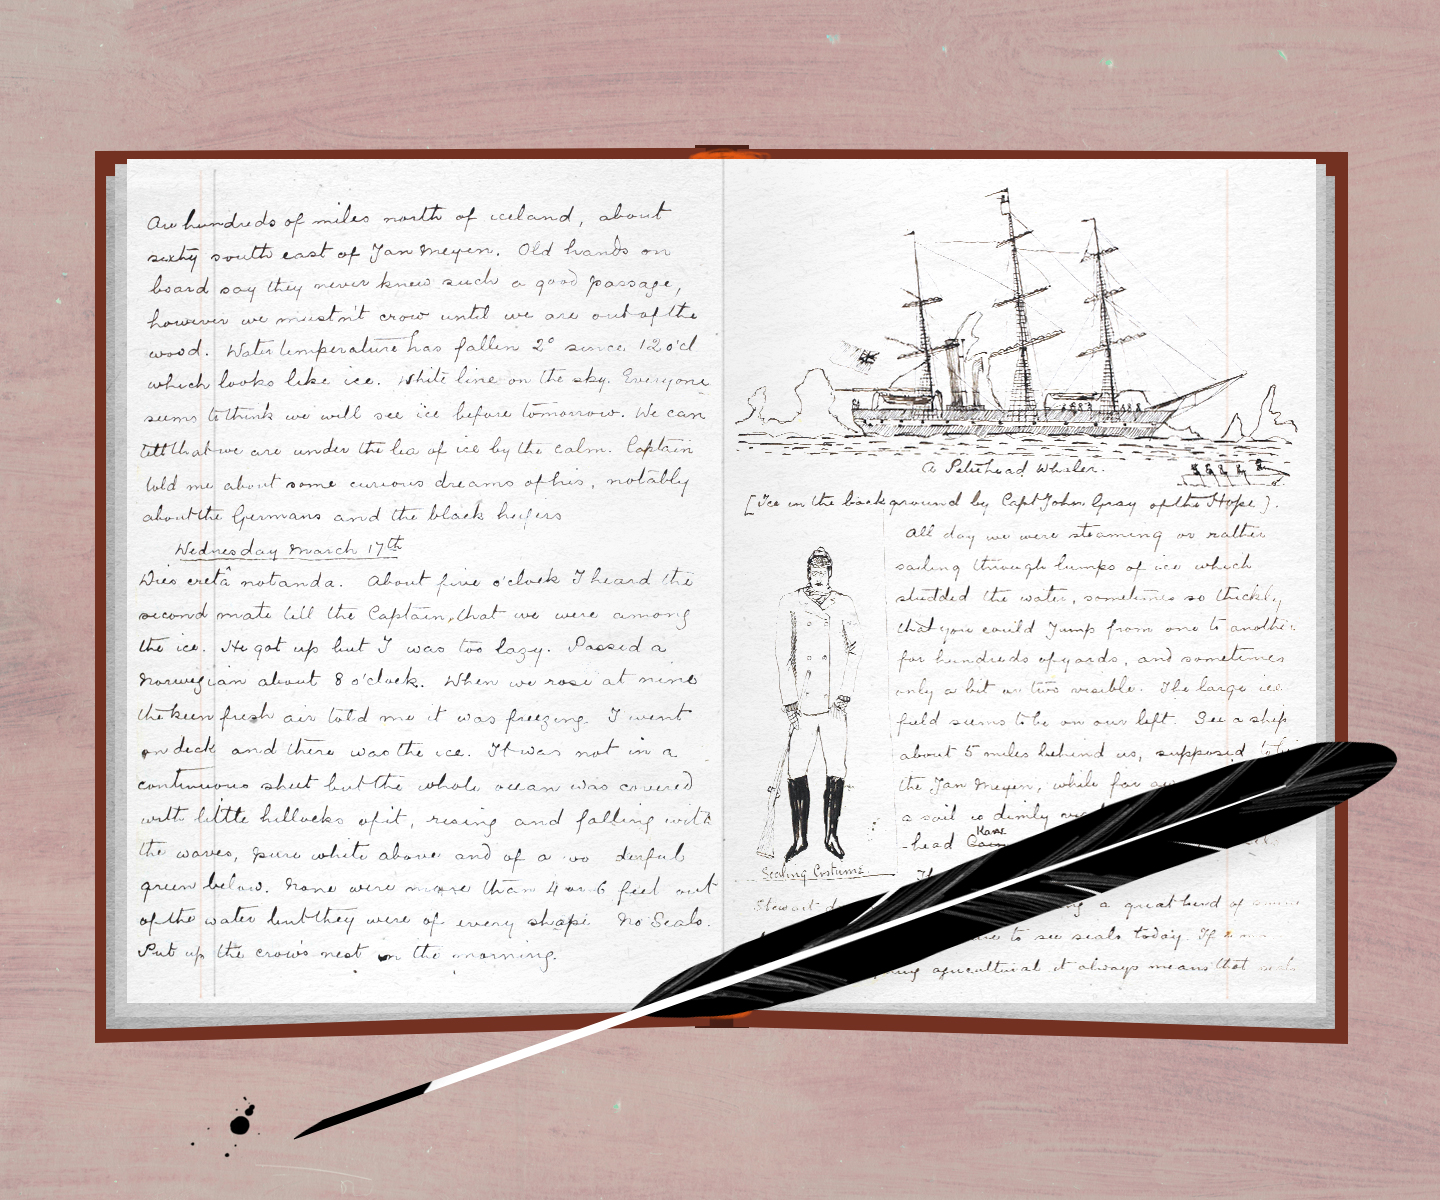 Are hundreds of miles north of iceland, about
sixty south east of Jan Meyen. Old hands on
board say they never knew such a good passage,
however we mustn't crow until we are out of the
wood. Water temperature has fallen 2° since 12 o'cl
which looks like ice. White line on the sky. Everyone
seems to think we will see ice before tomorrow. We can
tell that we are under the lea of ice by the calm. Captain
told me about some curious dreams of his, notably
about the Germans and the black heifers
Wednesday March 17th
Dies cretâ notanda. About five o'clock I heard the
second mate tell the Captain, that we were among
the ice. He got up but I was too lazy. Passed a
Norwegian about 8 o'clock. When we rose at nine
the keen fresh air told me it was freezing. I went
on deck and there was the ice. It was not in a
continuous sheet but the whole ocean was covered
with little hillocks of it, rising and falling with
the waves, pure white above and of a wo derful
green below. None were more than 4 or 6 feet out
of the water but they were of every shape No Seals.
Put up the crow's nest in the morning.
A Peterhead Whaler.
[Ice in the background by Capt John Gray of the Hope].
All day we were steaming or rather
sailing through lumps of ice which
studded the water, sometimes so thickly
that you could jump from one to another
for hundreds of yards, and sometimes
only a bit or two visible. The large ice
field seems to be on our left. See a ship
about 5 miles behind us, supposed to be
the Jan Meyen, while far
a sail is dimly
-head
Sealing Costume
Stewart
a great herd of
to see seals today. If
agricultural it always means that seals